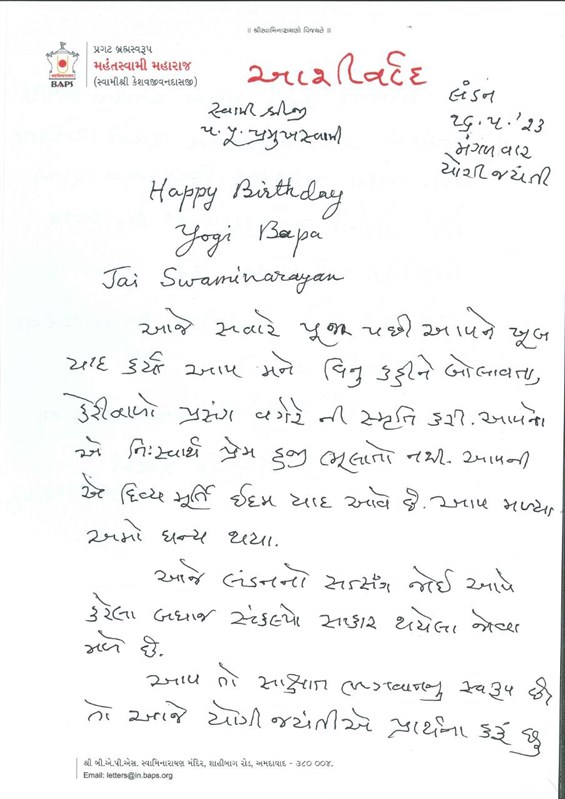 ॥ શ્રીસ્વામિનારાયણો વિજયતે ॥
પ્રગટ બ્રહ્મસ્વરૂપ
મહંતસ્વામી મહારાજ
(સ્વામીશ્રી કેશવજીવનદાસજી)
BAPS
આશીર્વાદ
લંડન
૨૬.૫.'૨૩
મંગળવાર
યોગીજયંતી
સ્વામીશ્રીજી
પ.પૂ. પ્રમુખસ્વામી
Happy Birthday
Yogi Bapa
Jai Swaminarayan
આજે સવારે પૂજા પછી આપને ખૂબ
યાદ કર્યા આપ મને વિનુ કહીને બોલાવતા,
કેરીવાળો પ્રસંગ વગેરે ની સ્મૃતિ કરી. આપનો
એ નિઃસ્વાર્થ પ્રેમ હજી ભૂલાતો નથી. આપની
એ દિવ્ય મૂર્તિ હદમ યાદ આવે છે. આપ મળ્યા
અમો ધન્ય થયા.
આજે લંડનનો સત્સંગ જોઈ આપે
કરેલા બધાજ સંકલ્પો સાકાર થયેલા જોવા
મળે છે.
આપ તો સાક્ષાત ભગવાનનુ સ્વરૂપ છો
તો આજે યોગી જયંતીએ પ્રાર્થના કરૂં છું
શ્રી બી.એ.પી.એસ. સ્વામિનારાયણ મંદિર, શાહીબાગ રોડ, અમદાવાદ - ૩૮૦ ૦૦૪.
Email: letters@in.baps.org